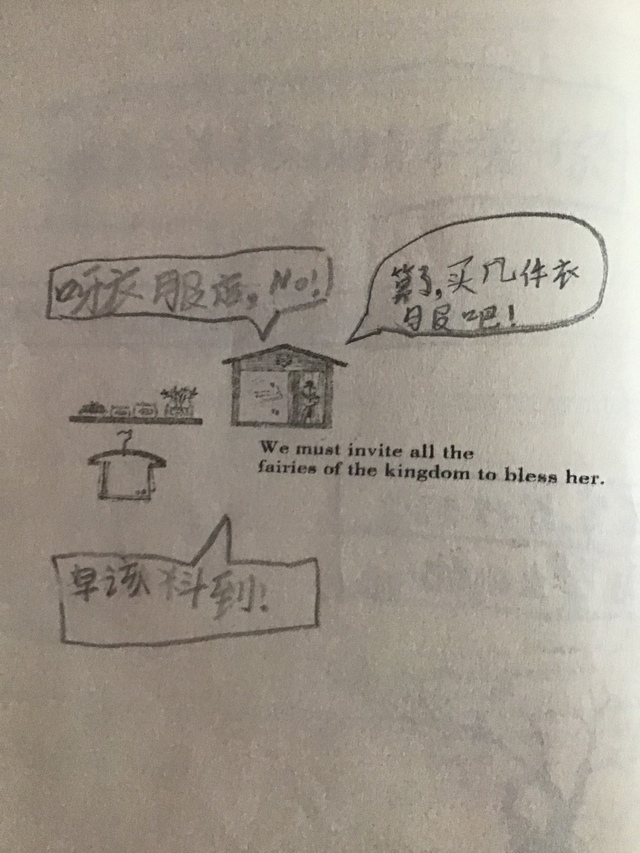 呀衣服店,No!
算了,买几件衣
服吧!
We must invite all the
fairies of the kingdom to bless her.
早该料到!